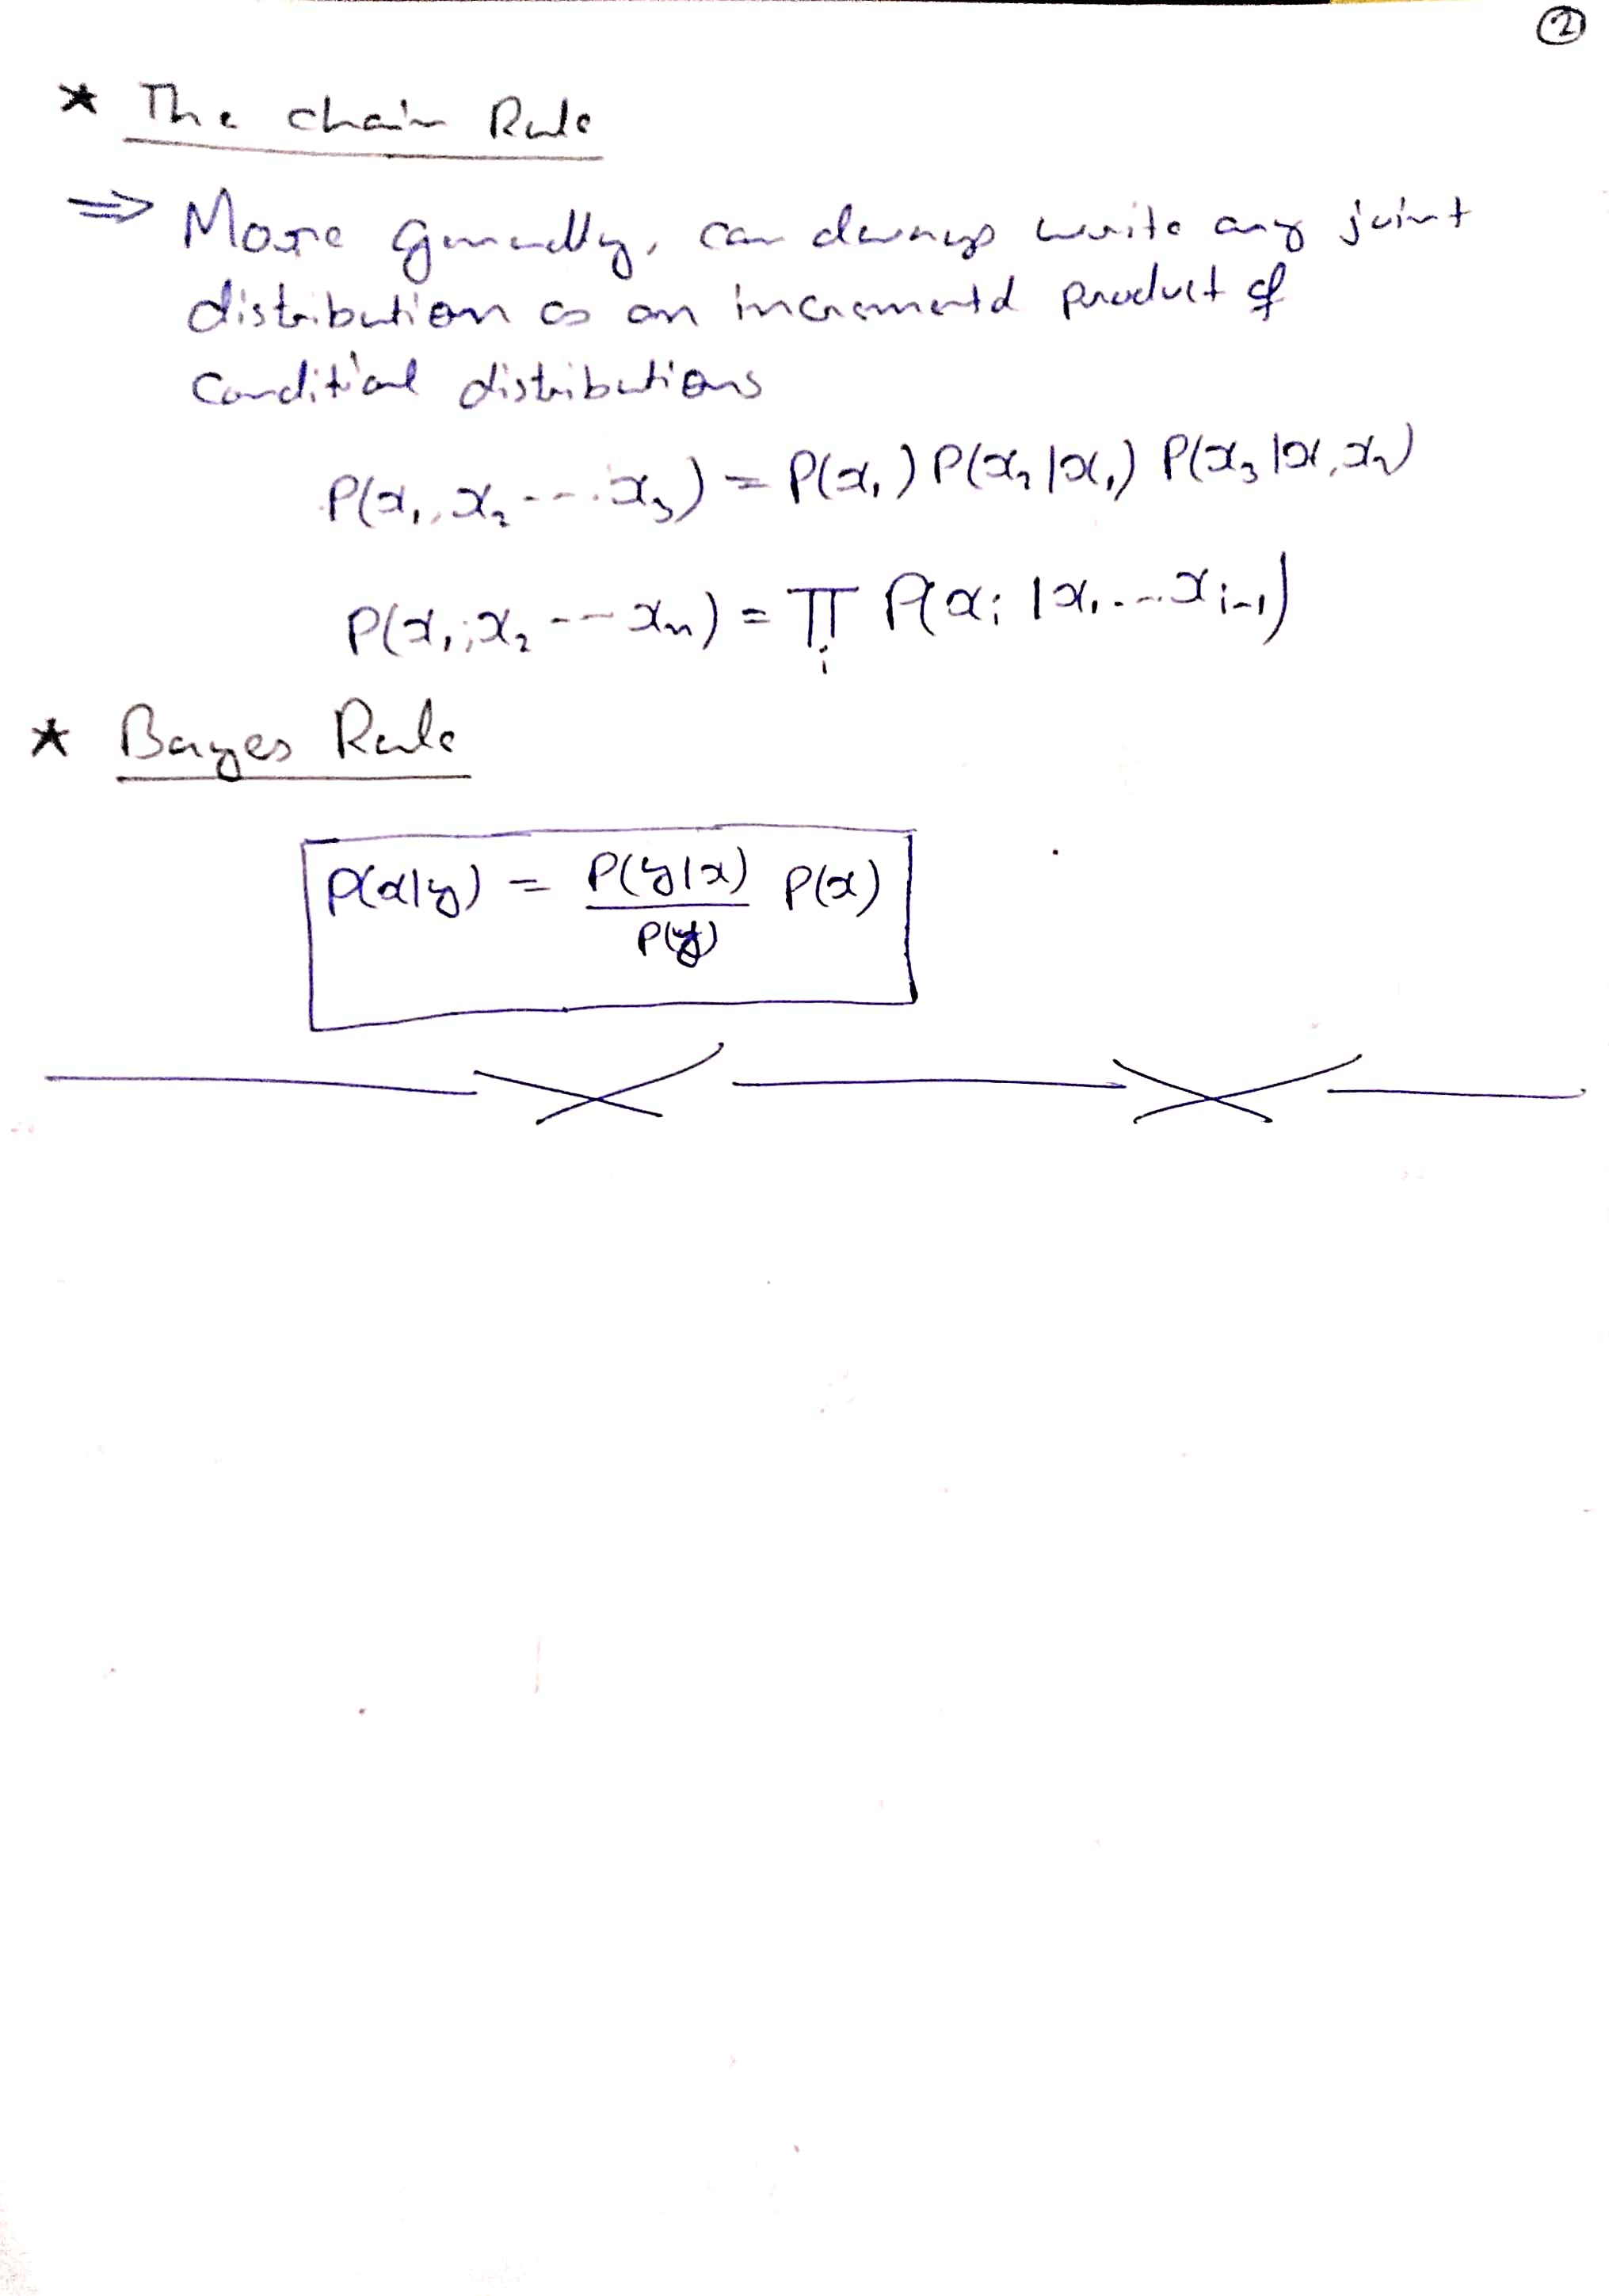 ②
* The chain Rule
⇒ More generally, can always write any joint
distribution as an incremental product of
Conditional distributions
P(x₁, x₂ ---. x₃) = P(x₁) P(x₂|x₁) P(x₃|x₁,x₂)
P(x₁, x₂ --- xₙ) = ∏ᵢ P(xᵢ|x₁...xᵢ₋₁)
* Bayes Rule
P(x|y) = P(y|x)/P(y) P(x)